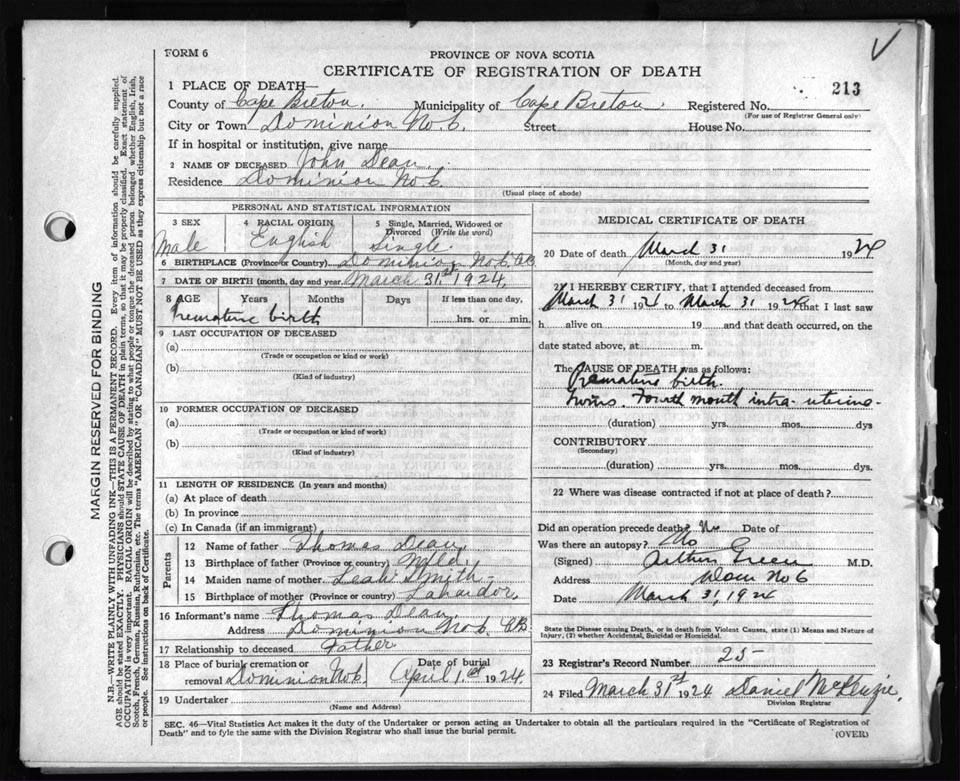 FORM 6
PROVINCE OF NOVA SCOTIA
CERTIFICATE OF REGISTRATION OF DEATH
213
1 PLACE OF DEATH—
County of Cape Breton. Municipality of Cape Breton. Registered No.
(For use of Registrar General only)
City or Town Dominion No. 6. Street House No.
If in hospital or institution, give name
2 NAME OF DECEASED John Dean.
Residence Dominion No 6
(Usual place of abode)
PERSONAL AND STATISTICAL INFORMATION
3 SEX
Male
4 RACIAL ORIGIN
English
5 Single, Married, Widowed or Divorced (Write the word)
Single.
6 BIRTHPLACE (Province or Country) Dominion No. 6
7 DATE OF BIRTH (month, day and year) March 31st 1924.
8 AGE Years Months Days If less than one day,
Premature birth hrs. or min.
9 LAST OCCUPATION OF DECEASED
(a)
(Trade or occupation or kind or work)
(b)
(Kind of industry)
10 FORMER OCCUPATION OF DECEASED
(a)
(Trade or occupation or kind of work)
(b)
(Kind of industry)
11 LENGTH OF RESIDENCE (In years and months)
(a) At place of death
(b) In province
(c) In Canada (if an immigrant)
Parents
12 Name of father Thomas Dean,
13 Birthplace of father (Province or country) Nfld.
14 Maiden name of mother Leah Smith
15 Birthplace of mother (Province or country) Labrador,
16 Informant's name Thomas Dean
Address Dominion No 6. C.B.
17 Relationship to deceased Father
18 Place of burial, cremation or removal Dominion No 6.
Date of burial April 1st 1924
19 Undertaker
(Name and Address)
MEDICAL CERTIFICATE OF DEATH
20 Date of death March 31 1924
(Month, day and year)
21 I HEREBY CERTIFY, that I attended deceased from
March 31 1924 to March 31 1924 that I last saw
h alive on 19 and that death occurred, on the
date stated above, at m.
The CAUSE OF DEATH was as follows:
Premature birth.
Twins. Fourth month intra-uterine.
(duration) yrs. mos. dys
CONTRIBUTORY
(Secondary)
(duration) yrs. mos. dys.
22 Where was disease contracted if not at place of death?
Did an operation precede death? No Date of
Was there an autopsy? No
(Signed) Arthur Green M.D.
Address Dom No 6
Date March 31, 1924
State the Disease causing Death, or in death from Violent Causes, state (1) Means and Nature of Injury, (2) whether Accidental, Suicidal or Homicidal.
23 Registrar's Record Number 25
24 Filed March 31st 1924 Daniel McKenzie,
Division Registrar
SEC. 46—Vital Statistics Act makes it the duty of the Undertaker or person acting as Undertaker to obtain all the particulars required in the "Certificate of Registration of
Death" and to fyle the same with the Division Registrar who shall issue the burial permit.
(OVER)
MARGIN RESERVED FOR BINDING
N.B.—WRITE PLAINLY WITH UNFADING INK—THIS IS A PERMANENT RECORD. Every item of information should be carefully supplied.
AGE should be stated EXACTLY. PHYSICIANS should STATE CAUSE OF DEATH in plain terms, so that it may be properly classified. Exact statement of
OCCUPATION is very important. RACIAL ORIGIN will be described by stating to what people or tongue the deceased person belonged whether English, Irish,
Scotch, French, German, Russian, Ruthenian, etc. The terms "AMERICAN" OR "CANADIAN" MUST NOT BE USED as they express citizenship but not a race
or people. See instructions on back of Certificate.